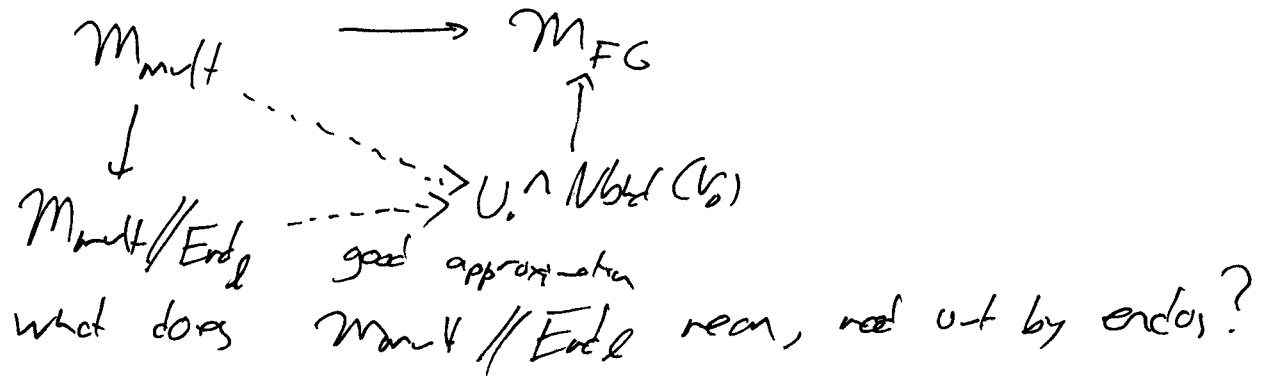 M_mult → M_FG
U. ∩ Nbhd (V₀)
M_mult // End_ℓ good approximation
what does M_mult // End_ℓ mean, mod out by endos?